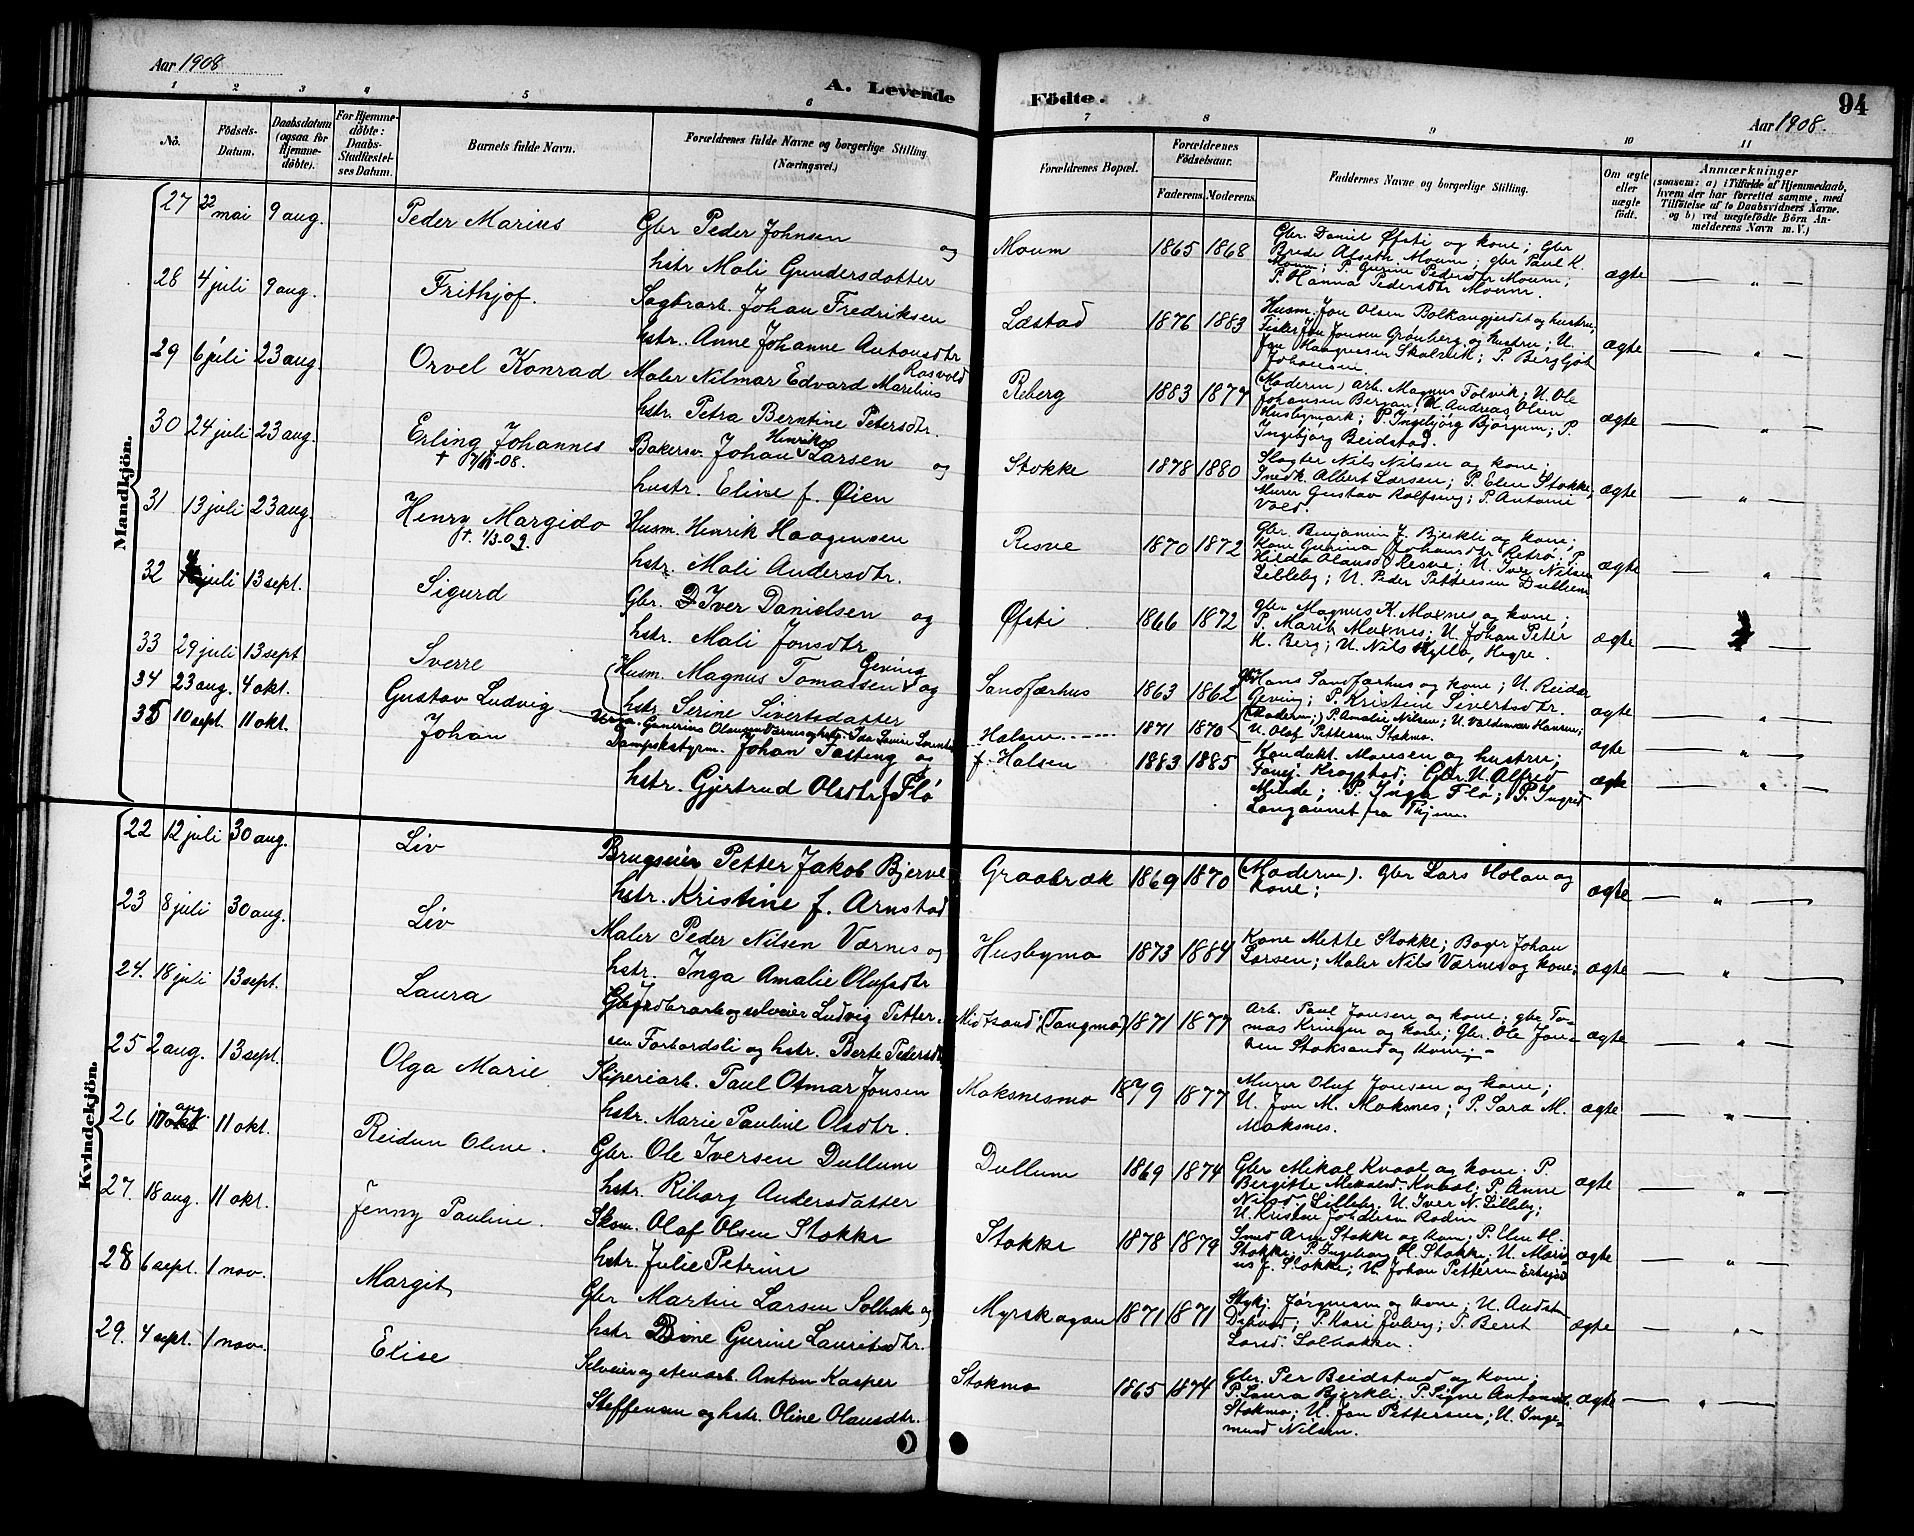 Aar 1908
A. Levende
Födte.
94
Aar 1908.
1 2 3 4 5 6 7 8 9 10 11
No.
Födsels-
Datum.
Daabsdatum
(ogsaa for
Hjemme-
döbte).
For Hjemme-
döbte:
Daabs-
Stadfæstel-
ses Datum.
Barnets fulde Navn.
Forældrenes fulde Navne og borgerlige Stilling
(Næringsvei.)
Forældrenes Bopæl.
Forældrenes
Födselsaar.
Faderens.
Moderens.
Faddernes Navne og borgerlige Stilling.
Om ægte
eller
uægte
födt.
Anmærkninger
(saasom: a) i Tilfælde af Hjemmedaab,
hvem der har forrettet samme, med
Tilföielse af to Daabsvidners Navne,
og b) ved uægtefödte Börn An-
melderens Navn m. V.)
Mandkjön.
27 22 mai 9 aug. Peder Marius
Gbr Peder Johnsen og
hstr Mali Gundersdatter
Moum 1865 1868
Gbr. Daniel Øfsti og kone; Gbr
Brede Alseth. Moum; gbr Paul K.
Moum; P. Gurine Pedersdtr Moum;
P. Hanna Pedersdtr Moum.
ægte
28 4 juli 9 aug. Frithjof.
Sagbrarb. Johan Fredriksen
hstr. Anne Johanne Antonsdtr
Læstad 1876 1883
Husm. Jon Olsen Bolkangjerdet og hustru,
Fisker Jon Jonsen Grönberg og hustru; U.
Jon Haagensen Skalvik; P. Bergljot
Johansen.
ægte
29 6 juli 23 aug. Orvel Konrad
Rosvold
Maler Nilmar Edvard Marelius
hstr. Petra Berntine Petersdtr.
Reberg 1883 1877
(Moderen) arb. Magnus Folvik; U. Ole
Johansen Bergan; U. Andreas Olsen
Husbymark; P. Ingebjörg Björgum; P.
Ingebjörg Beidstad.
ægte
30 24 juli 23 aug. Erling Johannes
Henrik
Bakersv. Johan Larsen og
hustr. Eline f. Øien
Stokke 1878 1880
Slagter Nils Nilsen og kone;
Snedk. Albert Larsen; P. Elen Stokke;
Murer Gustav Rolfseng; P. Antonie
Vold.
ægte
31 13 juli 23 aug. Henry Margido
†. 1/3-09.
Husm. Henrik Haagensen
hstr. Mali Andersdtr.
Resve 1870 1872
Gbr. Benjamin J. Bjerkli og kone;
Kone Gurina Johansdtr Retrö; P.
Hilda Olausd. Resve; U. Iver Nilsen
Lilleby; U. Peder Pettersen Dullum
ægte
32 juli 13 sept. Sigurd
Gbr. Iver Danielsen og
hstr. Mali Jonsdtr
Øfsti 1866 1872
Gbr Magnus K. Moxnes og kone;
P. Marit Moxnes; U. Johan Peter
H. Berg; U. Nils Kyllo, Hegre.
ægte
33 29 juli 13 sept Sverre
Geving
Husm. Magnus Tomassen og
hstr Serine Sivertsdatter
Sandfærhus 1863 1862
Hans Sandfærhus og kone; U. Reidar
Geving; P. Kristine Sivertsdtr.
ægte
34 23 aug. 4 okt. Gustav Ludvig
Halsen 1871 1870
(Moderen;) P. Amalie Nilsen; U. Valdemar Hansen;
U. Olaf Pettersen Stokmo.
ægte
35 10 sept. 11 okt. Johan
Dampskstyrm. Johan Fasting og
hstr. Gjertrud Olsdtr f. Flö
f. Halsen 1883 1885
Kondukt. Monsen og hustru;
Gbr. U. Alfred
Milde; P. Inga Flö; P. Ingrid
Langaunet fra Thjem.
ægte
Kvindekjön.
22 12 juli 30 aug. Liv
Brugseier Petter Jakob Bjerve
hstr. Kristine f. Arnstad
Graabræk 1869 1870
(Moderen). Gbr Lars Holan og
kone;
ægte
23 8 juli 30 aug. Liv
Maler Peder Nilsen Værnes og
hstr. Inga Amalie Olufsdtr
Husbymo 1873 1884
Kone Mette Stokke; Bager Johan
Larsen; Maler Nils Værnes og kone;
ægte
24. 18 juli 13 sept. Laura
Jordbrarb og selveier Ludvig Petter-
sen Forbordsli og hstr. Berte Pedersdtr.
Midtsand (Tangmo) 1871 1877
Arb. Paul Jonsen og kone; gbr To-
mas Kringen og kone; Gbr. Ole Jon-
sen Stoksand og kone;-
ægte
25 2 aug. 13 sept. Olga Marie
Sliperiarb. Paul Otmar Jonsen
hstr. Marie Pauline Olsdtr.
Moksnesmo 1879 1877
Murer Oluf Jonsen og kone;
U. Jon M. Moksnes; P. Sara M.
Moksnes.
ægte
26 17 aug. 11 okt. Reidun Oline.
Gbr. Ole Iversen Dullum
hstr. Riborg Andersdatter
Dullum 1869 1874
Gbr Mikal Kvaal og kone. P.
Bergitte Mikalsd. Kvaal; P. Anne
Nilsd. Lilleby. U. Iver N. Lilleby;
ægte
27. 18 aug. 11 okt. Jenny Pauline.
Skom. Olaf Olsen Stokke
hstr. Julie Petrine
Stokke 1878 1879
Smed Arn Stokke og kone; P. Elen H.
Stokke; P. Ingeborg H. Stokke; U. Mari-
us J. Stokke; U. Johan Pettersen
ægte
28 6 sept. 1 nov. Margit
Gbr Martin Larsen Solbak og
hstr. Gurine Lauritsdtr.
Myrskogan 1871 1871
Jörgensen og kone; U.
P. Berit
Larsd. Solbakken.
ægte
29. 4 sept. 1 nov. Elise
Selveier og stenarb. Anton Kasper
Steffensen og hstr. Oline Olausdtr.
Stokmo 1865 1874
Gbr. Per Beidstad og kone;
P. Laura Bjerkli. P. Signe Antonsd.
Stokmo; U. Jon Pettersen; U. Inge-
mund Nilsen.
ægte